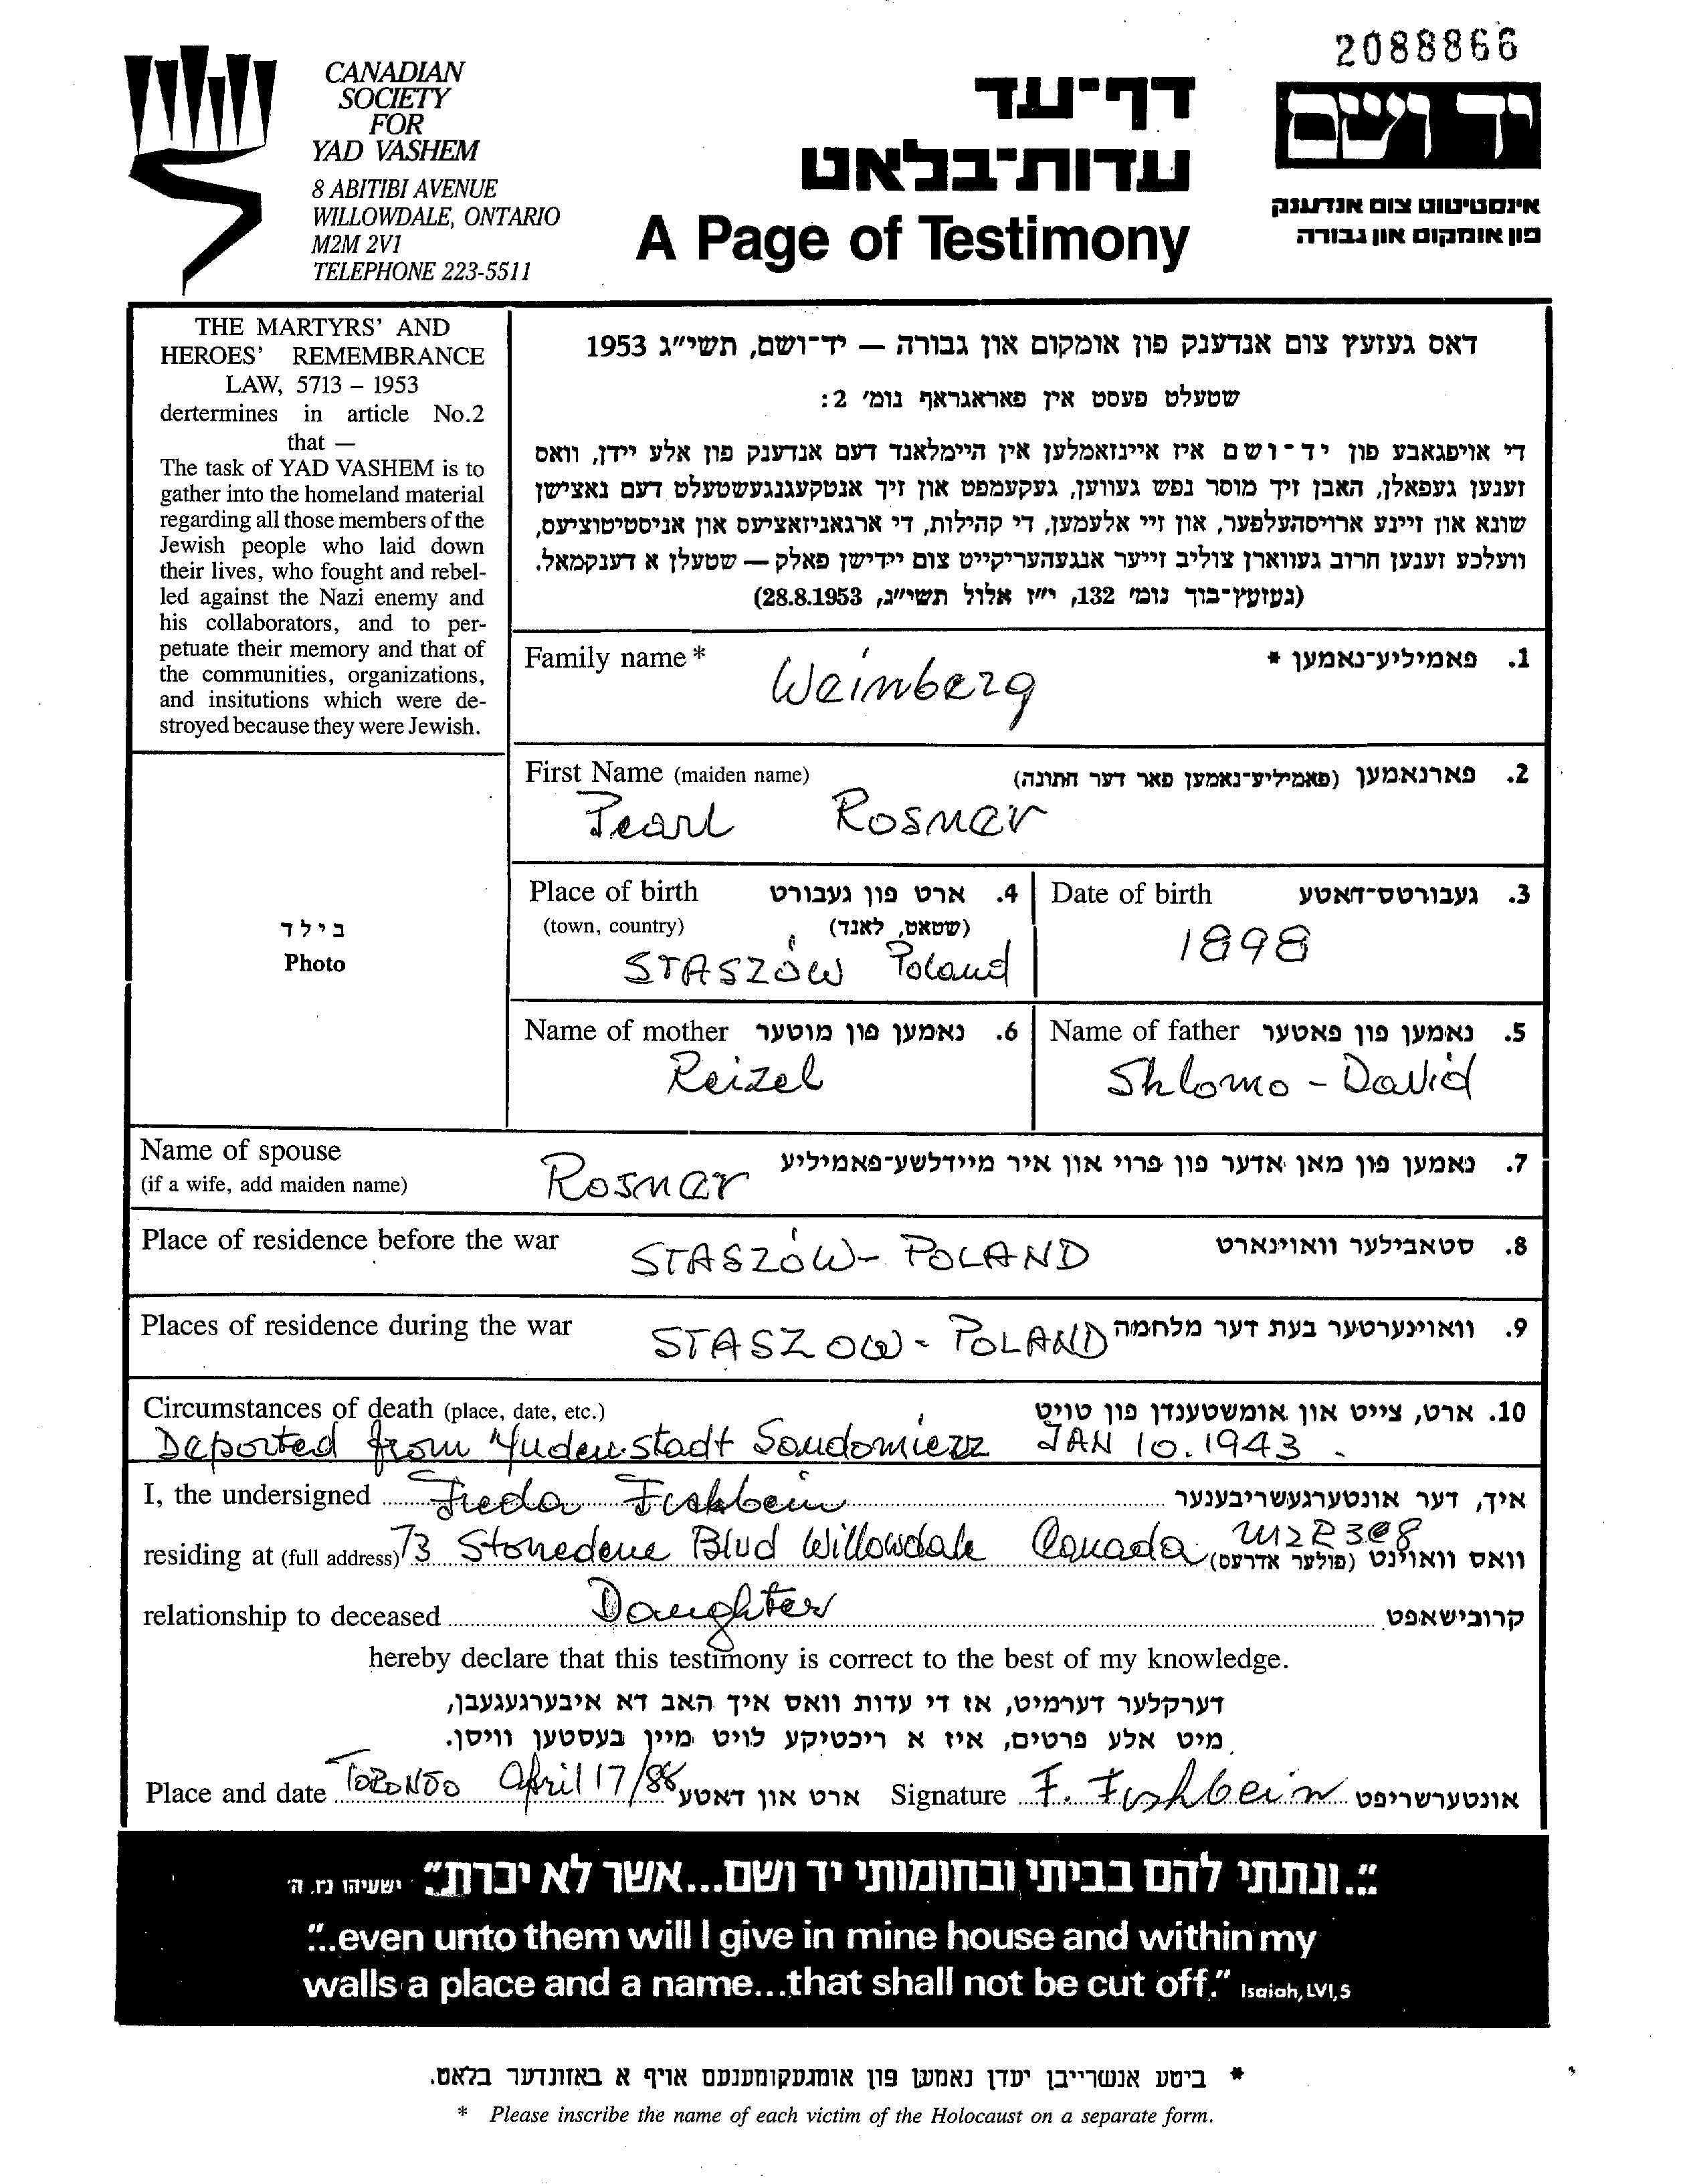 2088866
CANADIAN
SOCIETY
FOR
YAD VASHEM
8 ABITIBI AVENUE
WILLOWDALE, ONTARIO
M2M 2V1
TELEPHONE 223-5511
דף־עד
עדות־בלאט
A Page of Testimony
יד ושם
אינסטיטוט צום אנדענק
פון אומקום און גבורה
THE MARTYRS' AND
HEROES' REMEMBRANCE
LAW, 5713 – 1953
dertermines in article No.2
that —
The task of YAD VASHEM is to
gather into the homeland material
regarding all those members of the
Jewish people who laid down
their lives, who fought and rebel-
led against the Nazi enemy and
his collaborators, and to per-
petuate their memory and that of
the communities, organizations,
and insitutions which were de-
stroyed because they were Jewish.
דאס געזעץ צום אנדענק פון אומקום און גבורה — יד־ושם, תשי״ג 1953
שטעלט פעסט אין פאראגראף נומ׳ 2:
די אויפגאבע פון יד־ושם איז איינזאמלען אין היימלאנד דעם אנדענק פון אלע יידן, וואס
זענען געפאלן, האבן זיך מוסר נפש געווען, געקעמפט און זיך אנטקעגנגעשטעלט דעם נאצישן
שונא און זיינע ארויסהעלפער, און זיי אלעמען, די קהילות, די ארגאניזאציעס און אניסטיטוציעס,
וועלכע זענען חרוב געווארן צוליב זייער אנגעהעריקייט צום יידישן פאלק — שטעלן א דענקמאל.
(געזעץ־בוך נומ׳ 132, י״ז אלול תשי״ג, 28.8.1953)
Family name * Weinberg 1. פאמיליע־נאמען *
First Name (maiden name) 2. פארנאמען (פאמיליע־נאמען פאר דער חתונה)
Pearl Rosner
Place of birth 4. ארט פון געבורט
(town, country) (שטאט, לאנד)
STASZÓW Poland
Date of birth 3. געבורטס־דאטע
1898
Name of mother 6. נאמען פון מוטער
Reizel
Name of father 5. נאמען פון פאטער
Shlomo - David
Name of spouse
(if a wife, add maiden name) Rosner 7. נאמען פון מאן אדער פון פרוי און איר מיידלשע־פאמיליע
Place of residence before the war STASZÓW - POLAND 8. סטאבילער וואוינארט
Places of residence during the war STASZOW - POLAND 9. וואוינערטער בעת דער מלחמה
Circumstances of death (place, date, etc.) 10. ארט, צייט און אומשטענדן פון טויט
Deported from Yudenstadt JAN 10. 1943
I, the undersigned Freda Fishbein איך, דער אונטערגעשריבענער
residing at (full address) 73 Stonedene Blvd Willowdale Canada וואס וואוינט (פולער אדרעס)
relationship to deceased Daughter קרובישאפט
hereby declare that this testimony is correct to the best of my knowledge.
דערקלער דערמיט, אז די עדות וואס איך האב דא איבערגעגעבן,
מיט אלע פרטים, איז א ריכטיקע לויט מיין בעסטען וויסן.
Place and date TORONTO April 17/88 ארט און דאטע Signature F. Fishbein אונטערשריפט
"..ונתתי להם בביתי ובחומותי יד ושם...אשר לא יכרת" ישעיהו נו, ה׳
"...even unto them will I give in mine house and within my
walls a place and a name...that shall not be cut off." Isaiah, LVI,5
* ביטע אנשרייבן יעדן נאמען פון אומגעקומענעם אויף א באזונדער בלאט.
* Please inscribe the name of each victim of the Holocaust on a separate form.
בילד
Photo